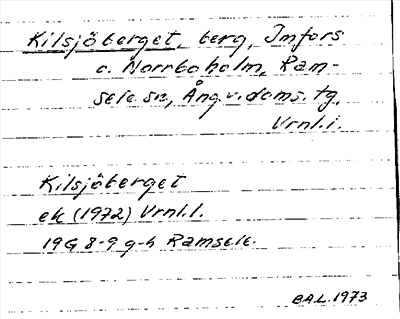 Kilsjöberget, berg, Imfors
o. Norrboholm, Ram-
sele sn, Ång.v.doms.tg.
Vrnl.i.
Kilsjöberget
ek (1972) Vrnl.l.
19G 8-9 g-h Ramsele.
B.A.L. 1973